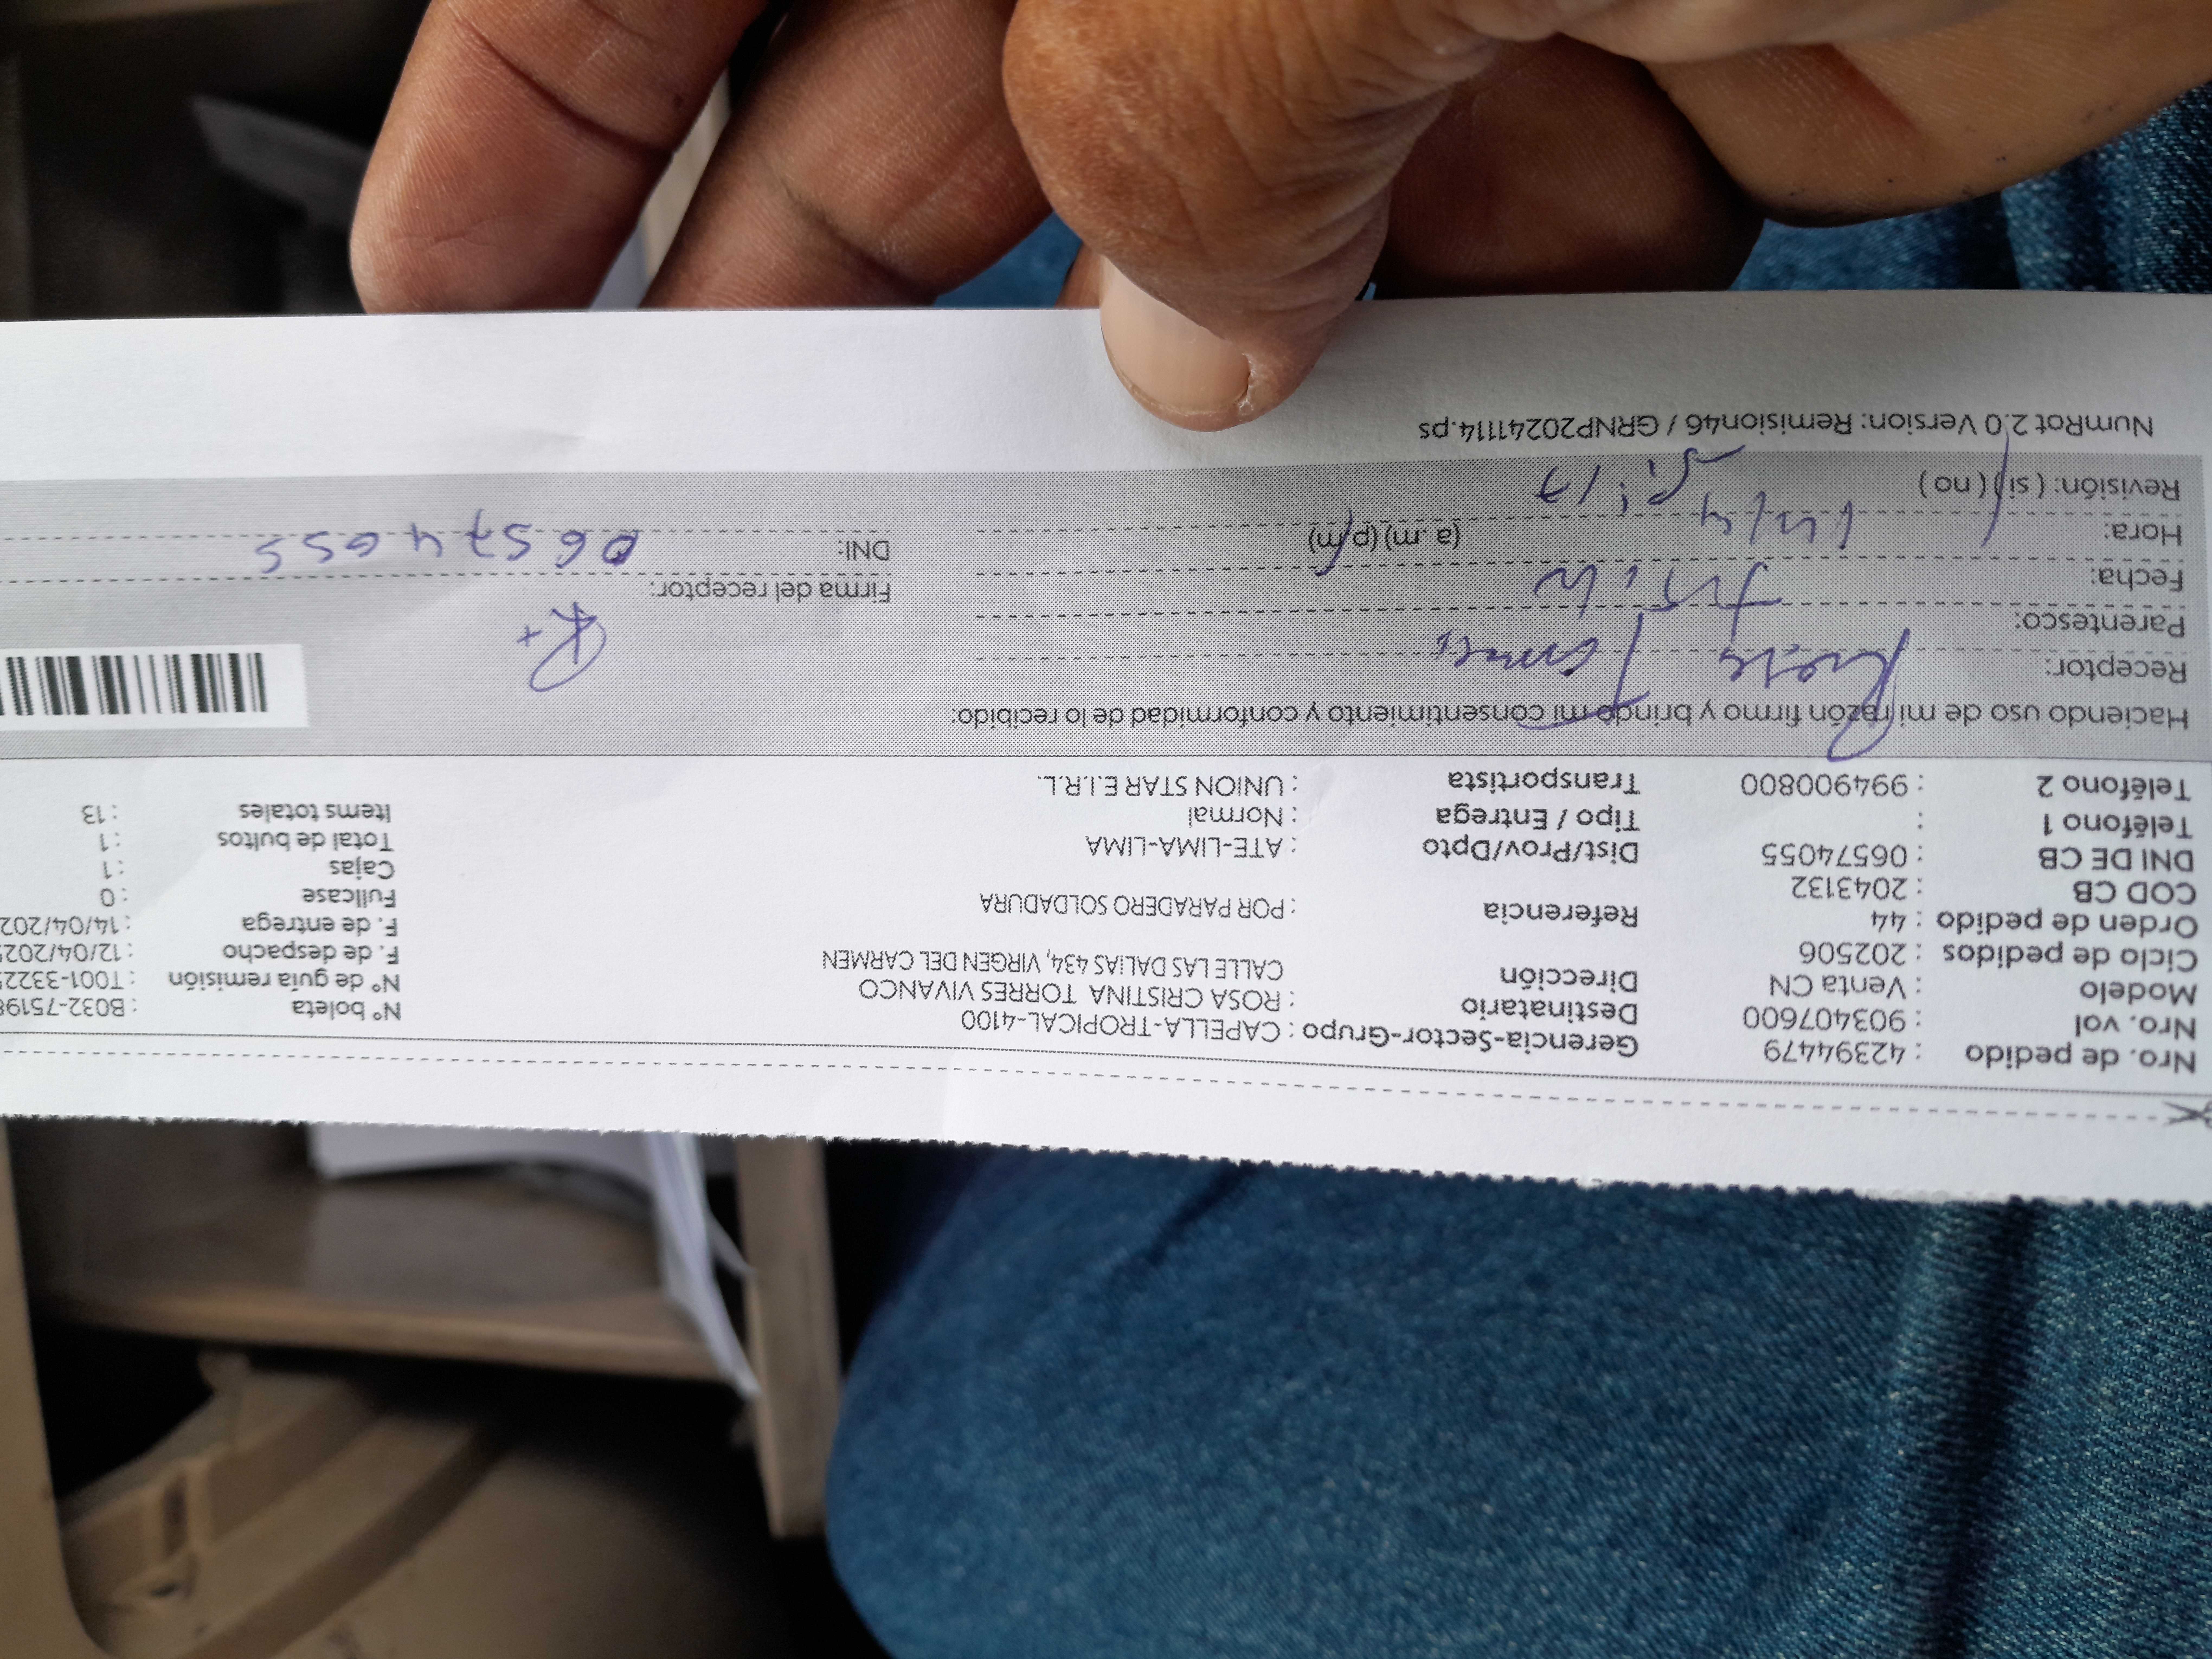 Nro. de pedido : 42394479 Gerencia-Sector-Grupo : CAPELLA-TROPICAL-4100 N° boleta : B032-75198
Nro. vol : 903407600 Destinatario : ROSA CRISTINA TORRES VIVANCO N° de guía remisión : T001-33225
Modelo : Venta CN Dirección CALLE LAS DALIAS 434, VIRGEN DEL CARMEN F. de despacho : 12/04/2025
Ciclo de pedidos : 202506 F. de entrega : 14/04/202
Orden de pedido : 44 Referencia : POR PARADERO SOLDADURA Fullcase : 0
COD CB : 2043132 Cajas : 1
DNI DE CB : 06574055 Dist/Prov/Dpto : ATE-LIMA-LIMA Total de bultos : 1
Teléfono 1 : Tipo / Entrega : Normal Items totales : 13
Teléfono 2 : 994900800 Transportista : UNION STAR E.I.R.L.
Haciendo uso de mi razón firmo y bringo mi consentimiento y conformidad de lo recibido:
Receptor: Rosa Torres
Parentesco:
Fecha: 14/4 Firma del receptor:
Hora: (a. m) (p. m) DNI: 06574055
Revisión: ( si ) ( no )
NumRot 2.0 Version: Remision46 / GRNP20241114.ps